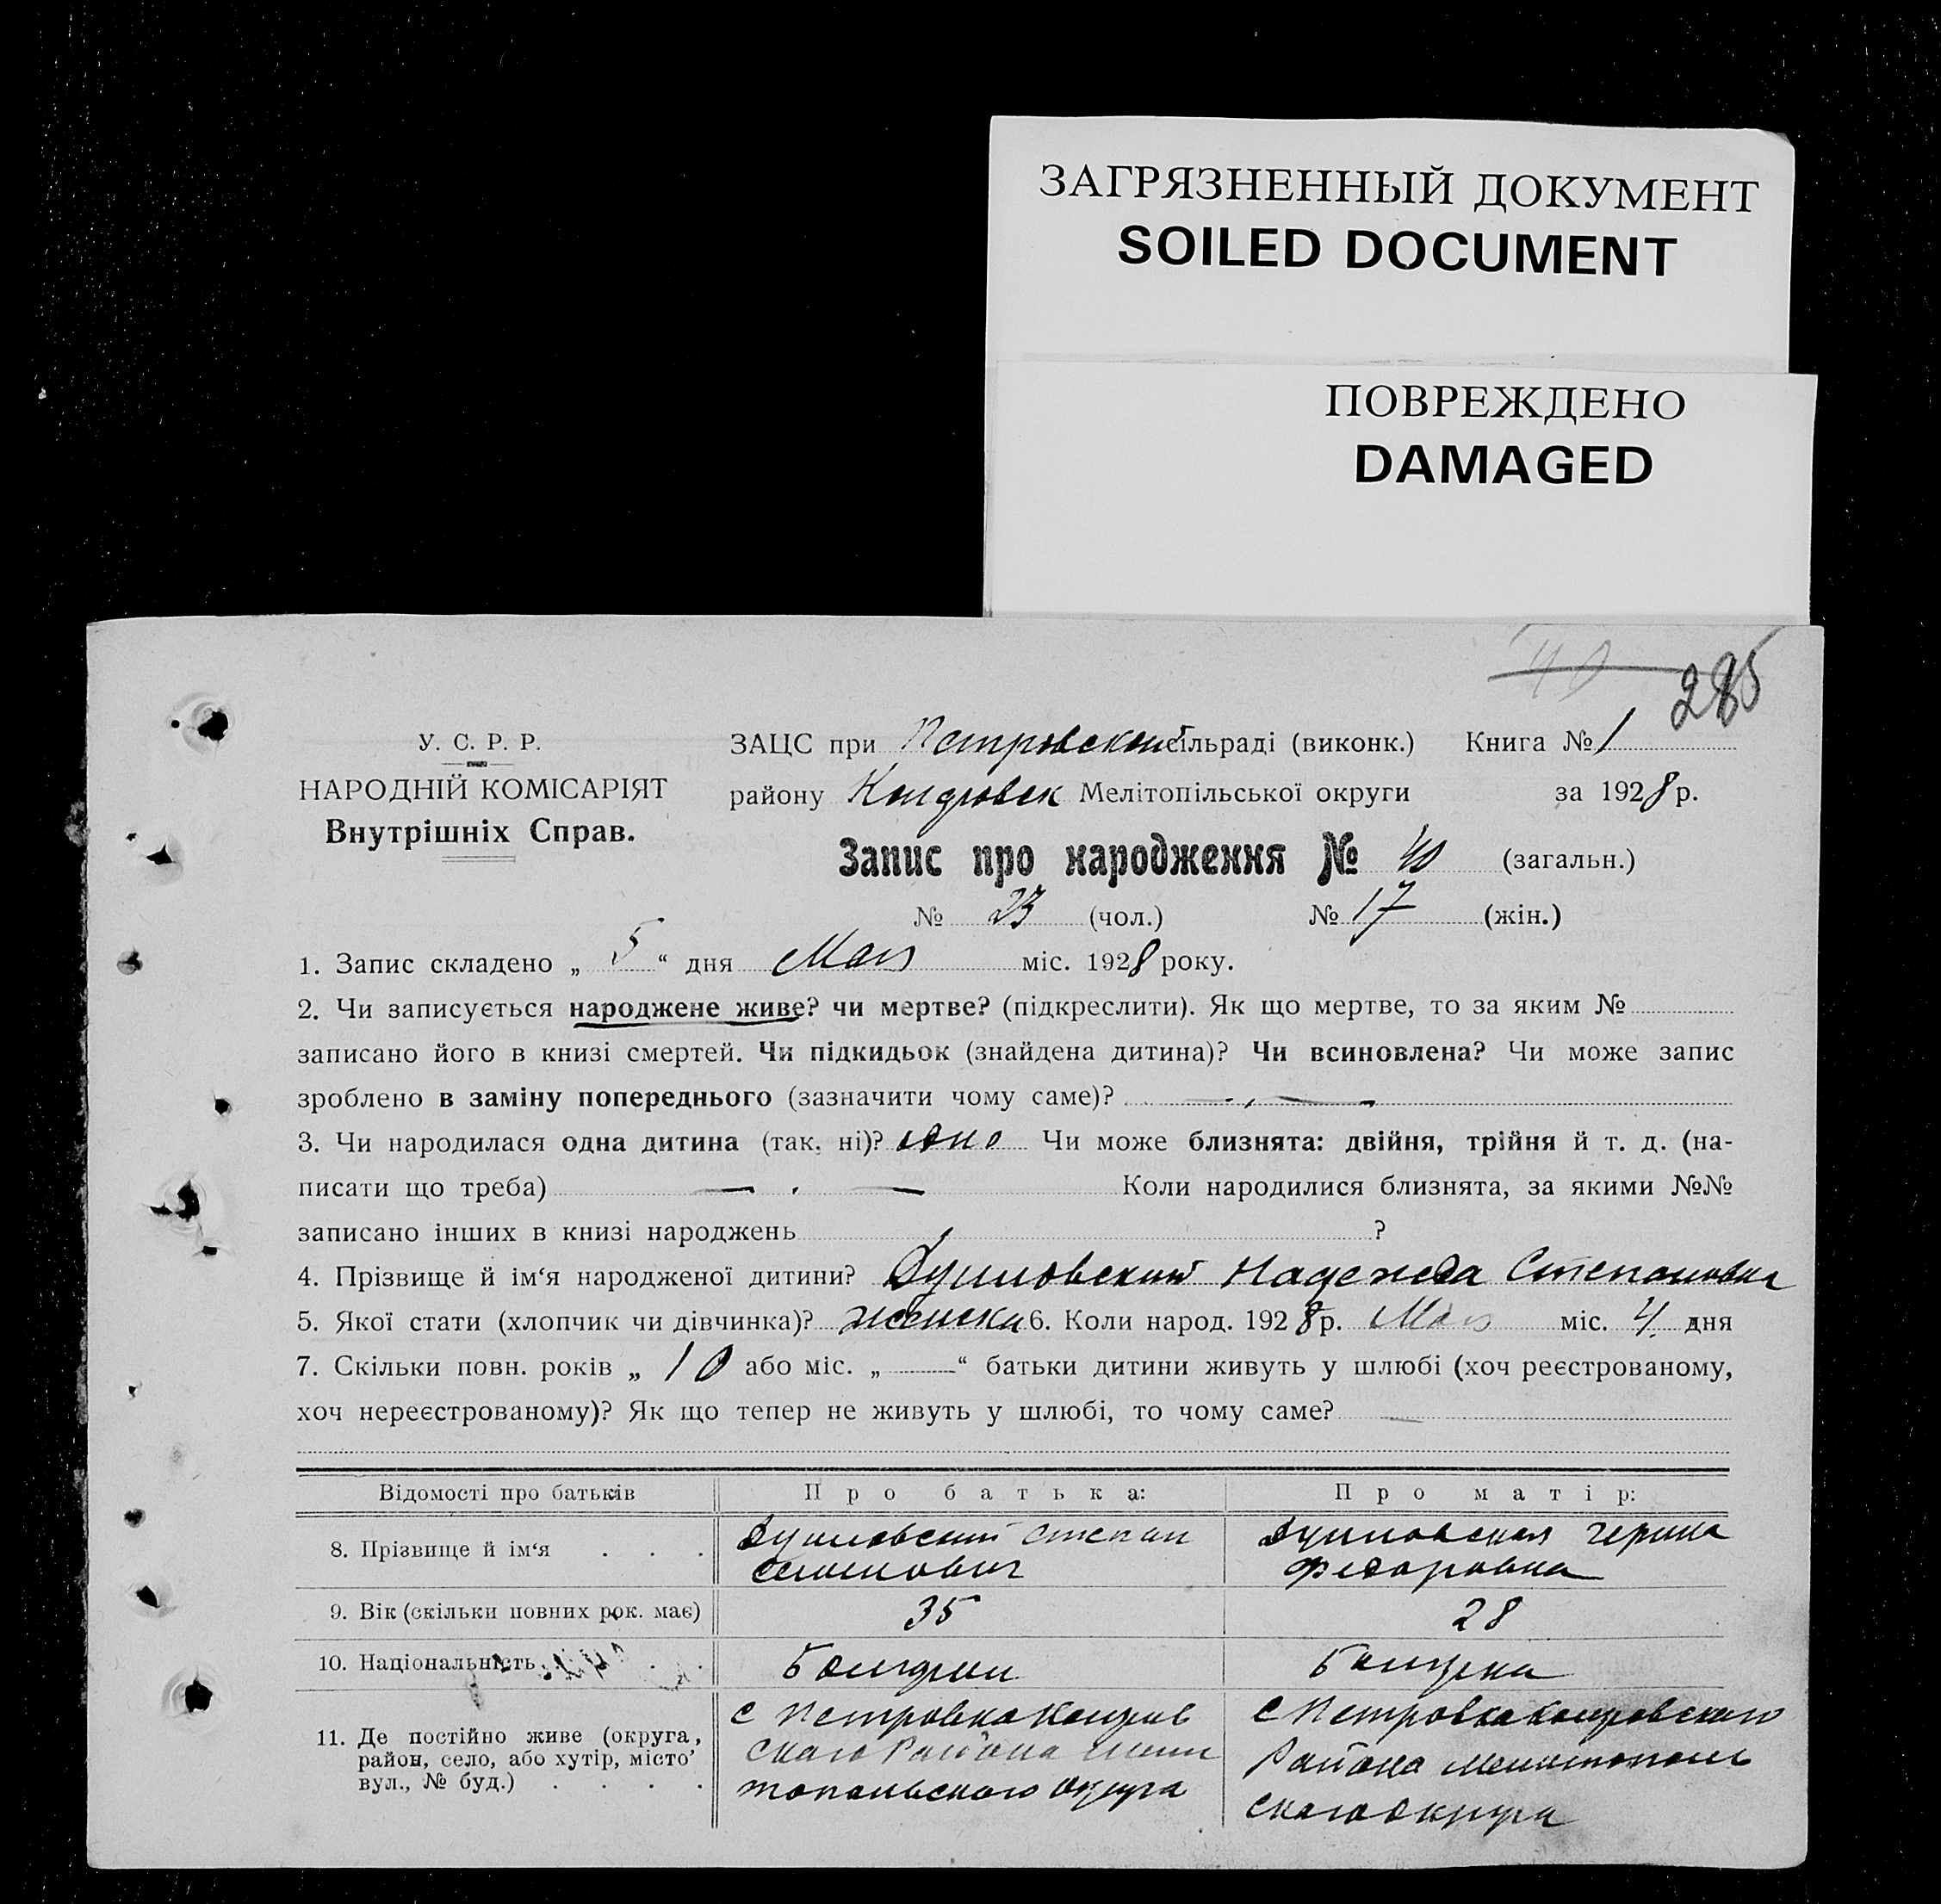 ЗАГРЯЗНЕННЫЙ ДОКУМЕНТ
SOILED DOCUMENT
ПОВРЕЖДЕНО
DAMAGED
40
285
У. С. Р. Р.
НАРОДНІЙ КОМІСАРІЯТ
Внутрішніх Справ.
ЗАЦС при Петровской сільраді (виконк.) Книга № 1
району Колдровск Мелітопільської округи за 1928 р.
Запис про народження № 40 (загальн.)
№ 23 (чол.) № 17 (жін.)
1. Запис складено „ 5 “ дня Мая міс. 1928 року.
2. Чи записується народжене живе? чи мертве? (підкреслити). Як що мертве, то за яким №
записано його в книзі смертей. Чи підкидьок (знайдена дитина)? Чи всиновлена? Чи може запис
зроблено в заміну попереднього (зазначити чому саме)?
3. Чи народилася одна дитина (так, ні)? одно Чи може близнята: двійня, трійня й т. д. (на-
писати що треба) Коли народилися близнята, за якими №№
записано інших в книзі народжень ?
4. Прізвище й ім‘я народженої дитини? Надежда Степановна
5. Якої стати (хлопчик чи дівчинка)? женска 6. Коли народ. 1928 р. Мая міс. 4. дня
7. Скільки повн. років „ 10 або міс. „ — “ батьки дитини живуть у шлюбі (хоч реєстрованому,
хоч нереєстрованому)? Як що тепер не живуть у шлюбі, то чому саме? —
Відомості про батьків Про батька: Про матір:
8. Прізвище й ім‘я . . . Степан
Семенович Федоровна
9. Вік (скільки повних рок. має) 35 28
10. Національність . . . Болгрин Болгрка
11. Де постійно живе (округа, район, село, або хутір, місто’ вул., № буд.) . . . .
с Петровка Колдров
ского Района Мели
топольского округа
с Петровка Колдровского
Района Мелитополь
ского округа